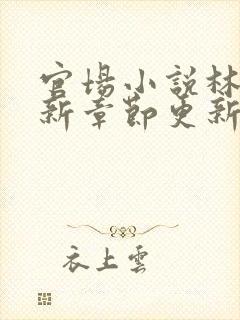 官場小說林
新章節更新
衣上雲